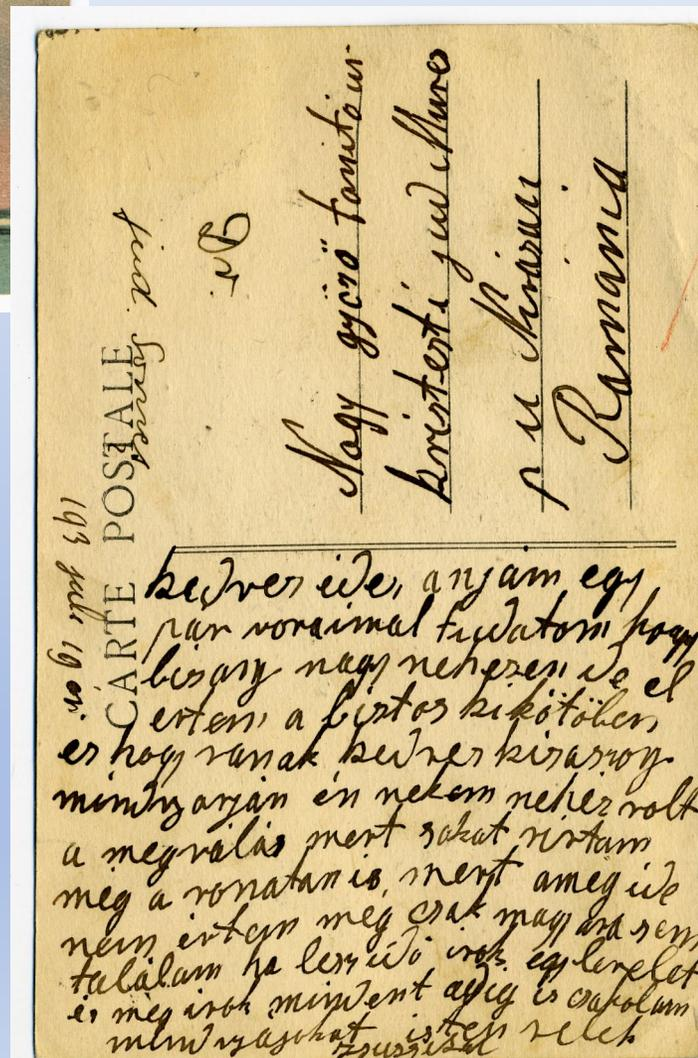 CARTE POSTALE
193 juli 19 én
Nagy győző tanitó úr
kristesti jud Mures
p u
Romania
kedves ide, anjam egy
pár soraimal tudatom hogy
bisony nagy nehezen ide el
értem a bistos kikötőben
es hogy vanak kedves kisaszony
mindnyarján én nekem nehéz volt
a megválás mert sokat sirtam
még a vonatan is, mert ameg ide
nem értem meg csak magyara sem
találam ha lesz idő irok egy levelet
és meg irok mindent adig is csokolam
mindnyájokat isten velek
zsuzsika